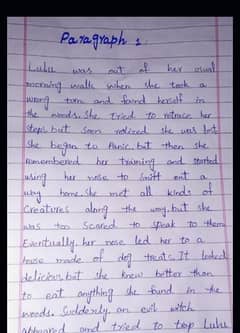 Paragraph 1
Luku was out of her usual
morning walk when she took a
wrong turn and found herself in
the woods. She tried to retrace her
steps but soon realized she was lost
She began to panic. but then she
remembered her training and started
using her nose to sniff out a
way home. She met all kinds of
Creatures along the way. but she
was too scared to speak to them
Eventually her nose led her to a
house made of dog treats. It looked
delicious. but she knew better than
to eat anything she found in the
woods. Suddenly an evil witch
appeared and tried to trap Lulu